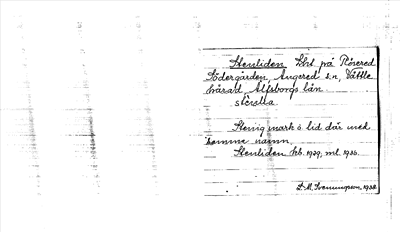 Stenliden Lht på Rösered
Södergården, Angered s:n, Vättle
härad, Älfsborgs län.
stẹ̄nlia
Stenig mark o. lid där med
samma namn.
Stenliden kb. 1929, ml. 1936.
D. M. Svenungsson, 1938.